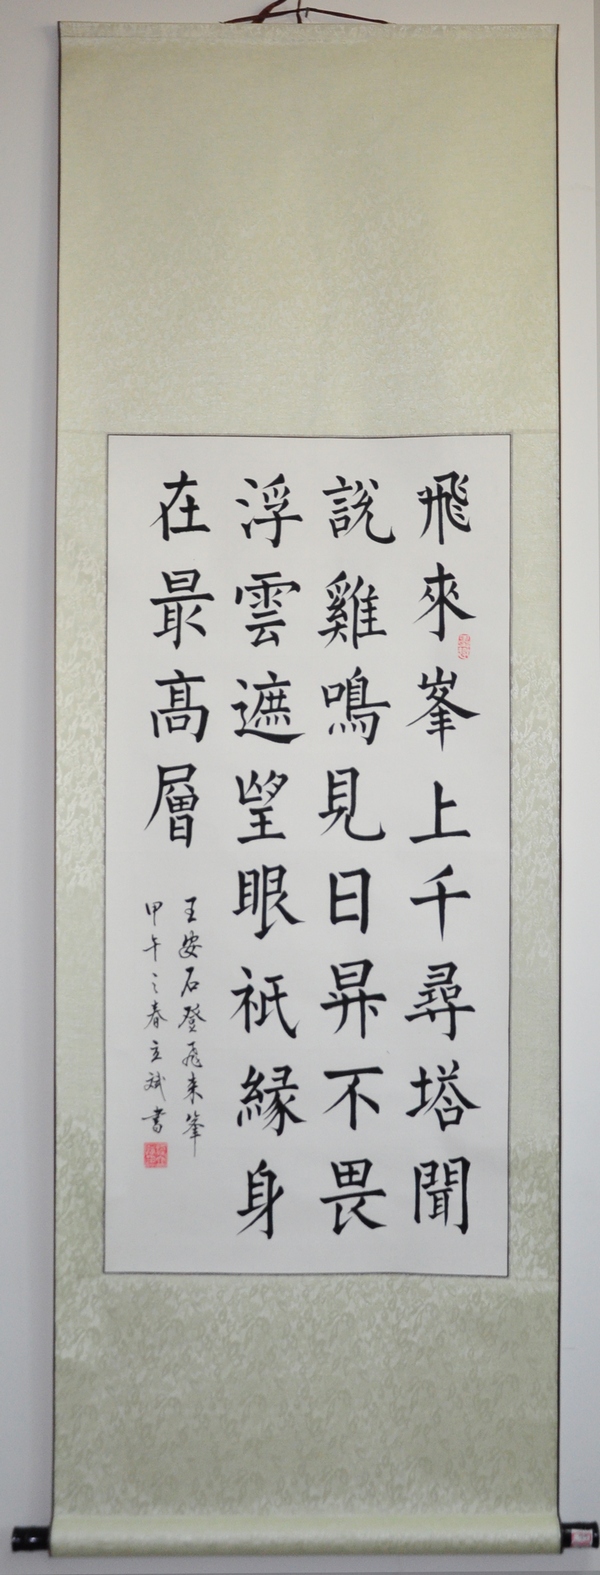 飛來峯上千尋塔聞
說雞鳴見日昇不畏
浮雲遮望眼祇緣身
在最高層
王安石登飛来峯
甲午之春立斌書